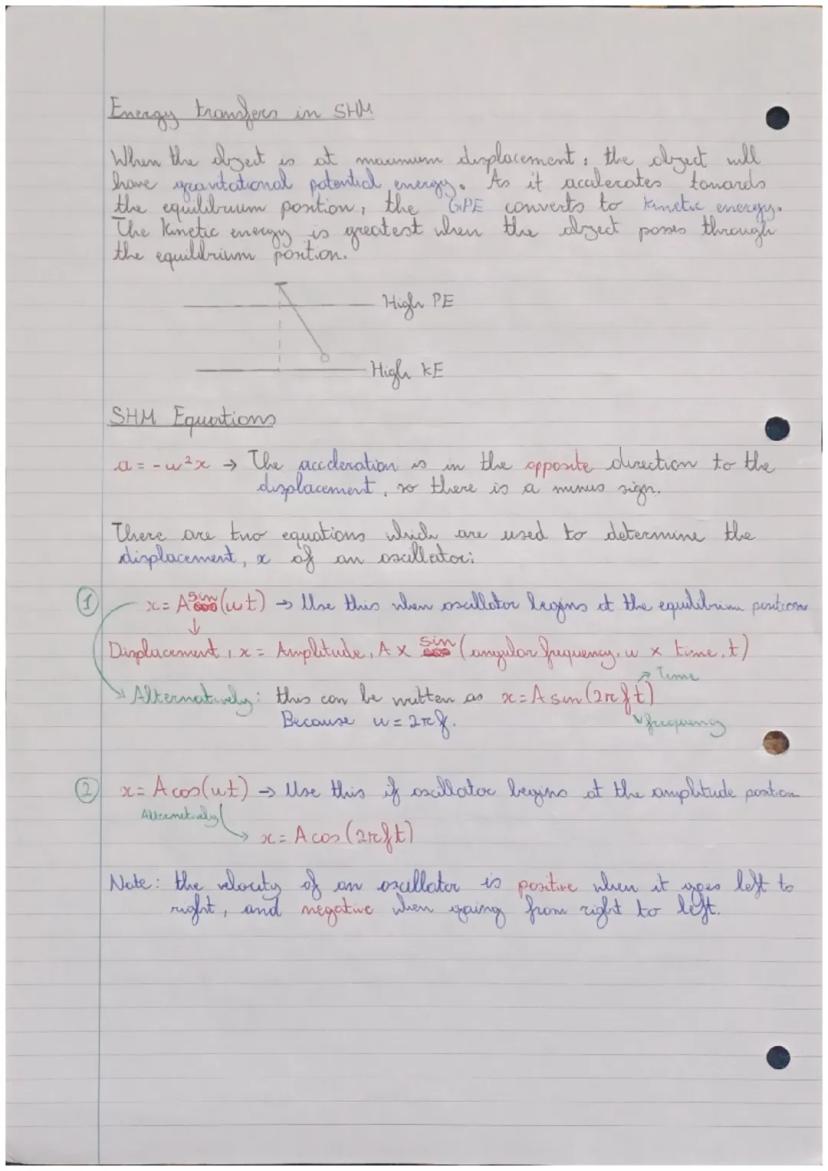 Energy transfers in SHM
When the object is at maximum displacement, the object will
have gravitational potential energy. As it accelerates towards
the equilibrium position, the GPE converts to kinetic energy.
The kinetic energy is greatest when the object passes through
the equilibrium position.
High PE
High KE
SHM Equations
a = -ω²x → The acceleration is in the opposite direction to the
displacement, so there is a minus sign.
There are two equations which are used to determine the
displacement, x of an oscillator:
① x = A sin (ωt) → Use this when oscillator begins at the equilibrium position
↓
Displacement, x = Amplitude, A × sin (angular frequency, ω × time, t)
↗ Time
Alternatively: this can be written as x = A sin (2πft)
Because ω = 2πf. ↘ frequency
② x = A cos(ωt) → Use this if oscillator begins at the amplitude position
Alternatively
→ x = A cos (2πft)
Note: the velocity of an oscillator is positive when it goes left to
right, and negative when going from right to left.